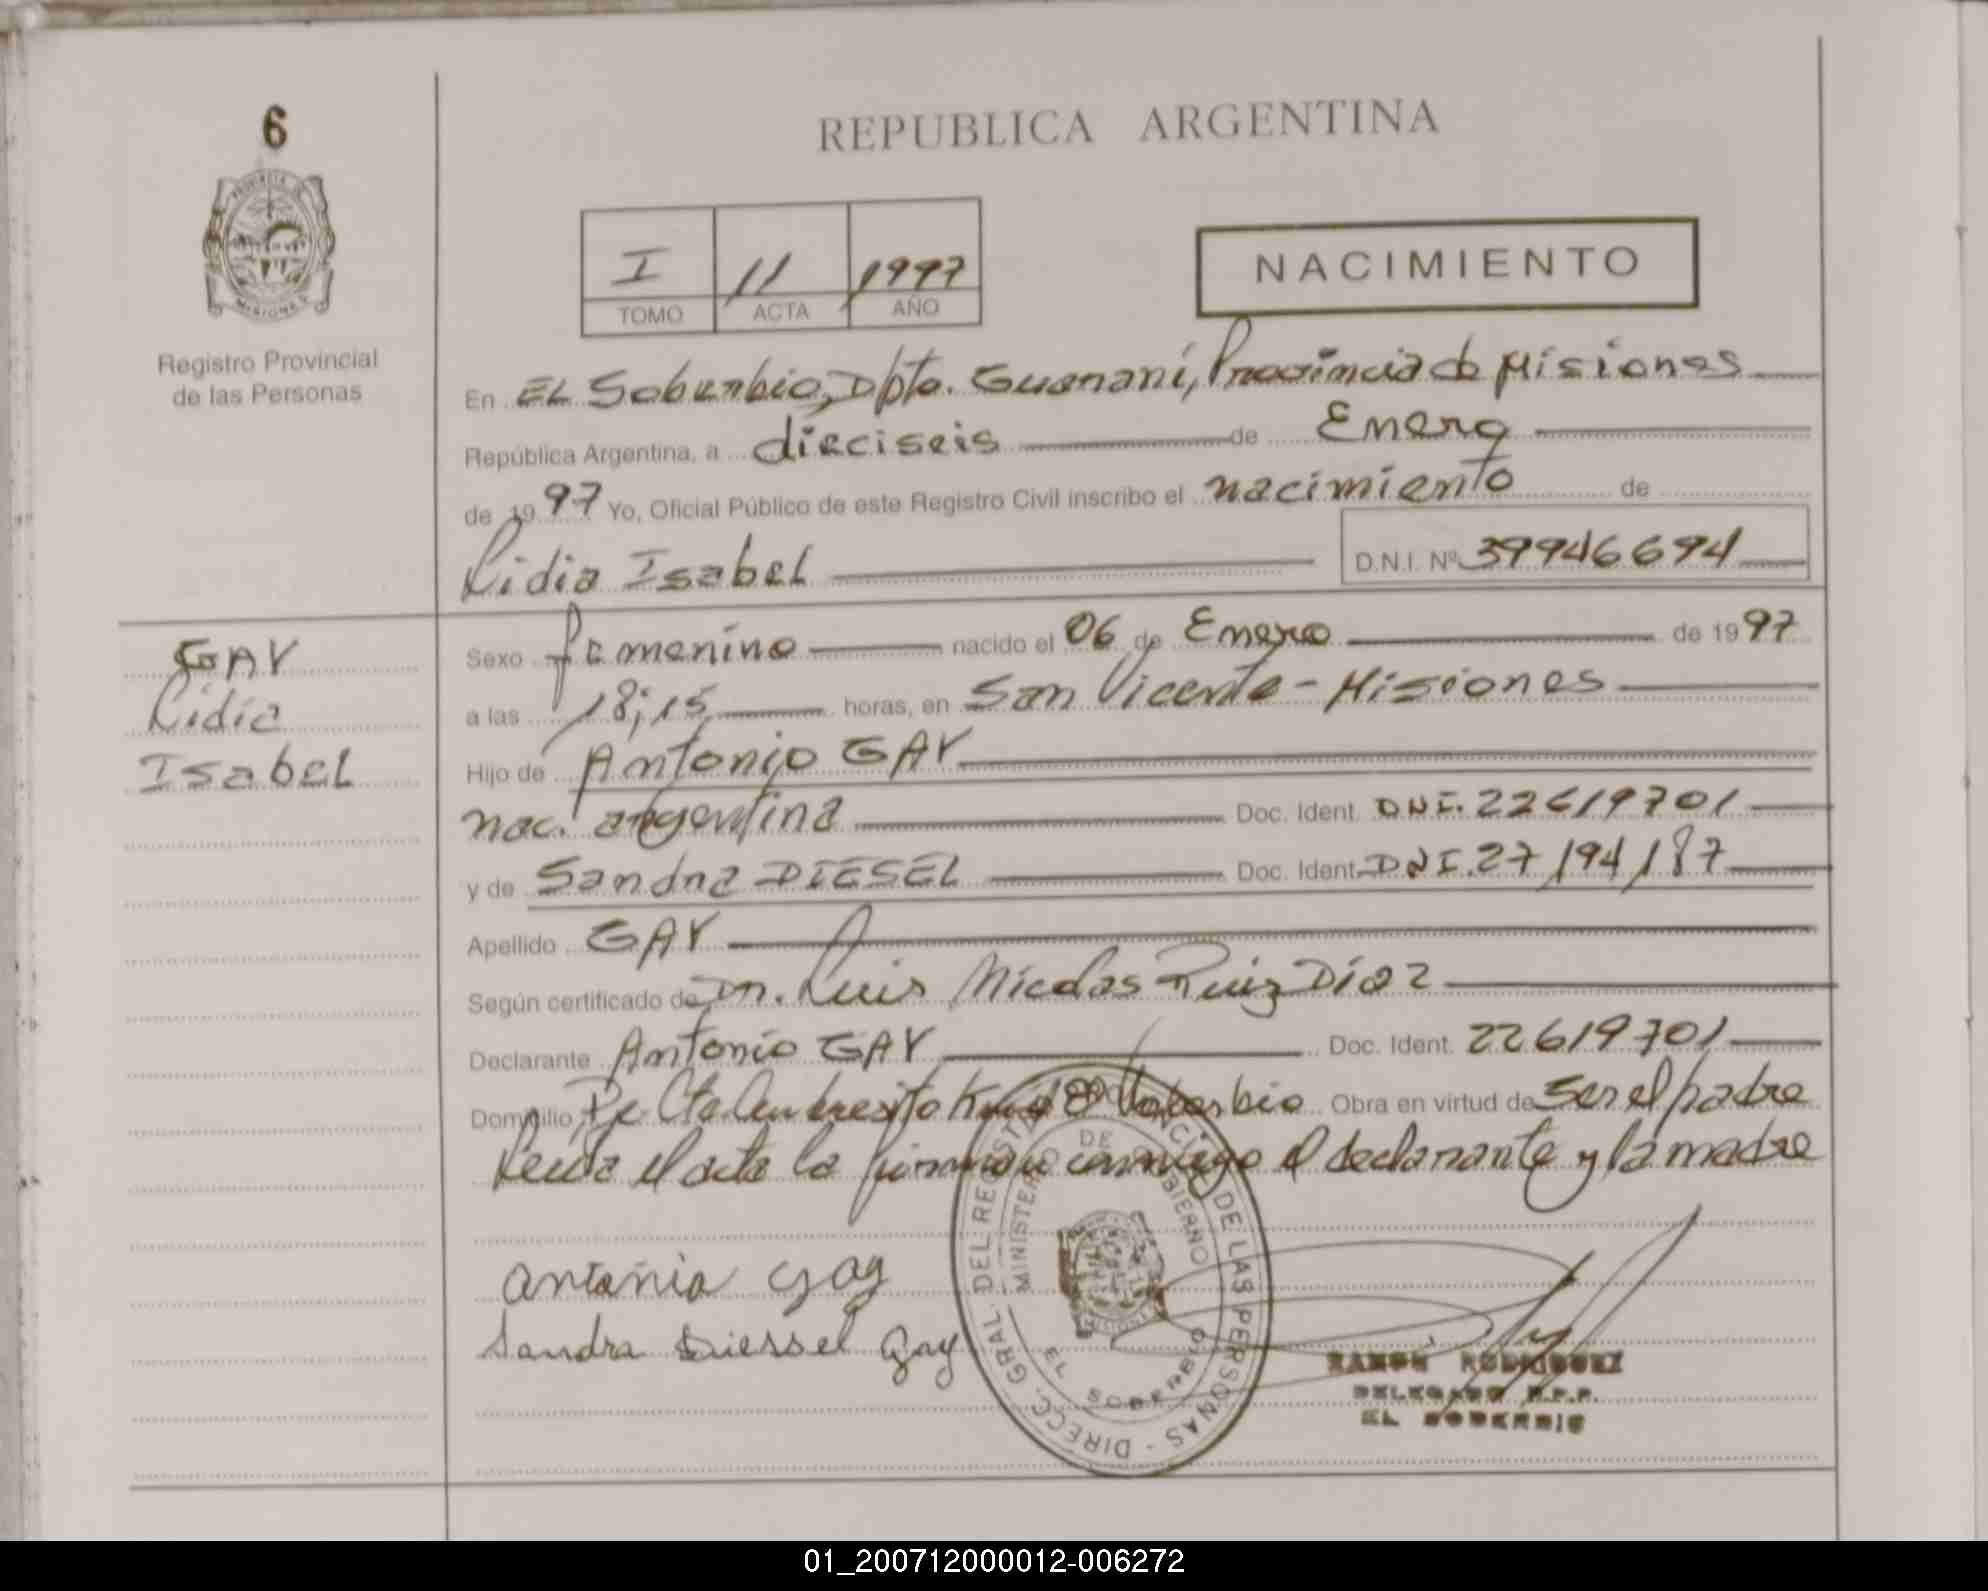 6
REPUBLICA ARGENTINA
PROVINCIA DE
MISIONES
Registro Provincial
de las Personas
I 11 1997
TOMO ACTA AÑO
NACIMIENTO
En EL Soberbio, Dpto. Guarani, Provincia de Misiones
República Argentina, a dieciseis de Enero
de 1997 Yo, Oficial Público de este Registro Civil inscribo el nacimiento de
Lidia Isabel D.N.I. Nº 39946694
GAY
Lidia
Isabel
Sexo femenino nacido el 06 de Enero de 1997
a las 18;15 horas, en San Vicente - Misiones
Hijo de Antonio GAY
nac. argentina Doc. Ident. DNI. 22619701
y de Sandra DIESEL Doc. Ident. DNI. 27194187
Apellido GAY
Según certificado de Dr. Luis Nicolas Ruiz Díaz
Declarante Antonio GAY Doc. Ident. 22619701
Domicilio Obra en virtud de Ser el padre
Leida el acta la firman conmigo el declarante y la madre
Antonio gay
Sandra Diessel gay
DIRECC. GRAL. DEL REGISTRO PROVINCIAL DE LAS PERSONAS
MINISTERIO DE GOBIERNO
EL SOBERBIO
RAMON RODRIGUEZ
DELEGADO R.P.P.
EL SOBERBIO
01_200712000012-006272